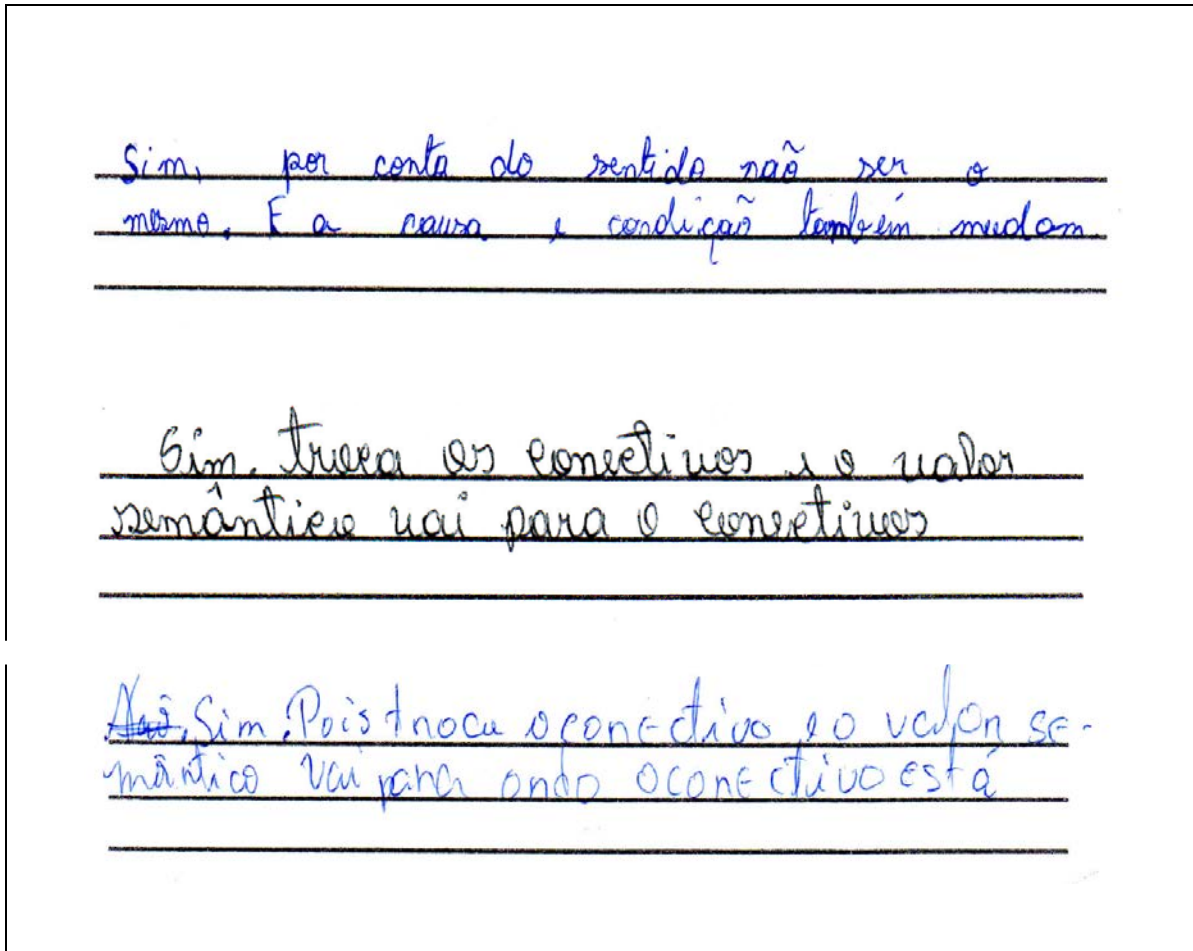 Sim, por conta do sentido não ser o
mesmo. E a causa e condição também mudam.
Sim. troca os conectivos e o valor
semântico vai para o conectivos
Sim. Pois troca o conectivo e o valor se-
mântico vai para ondo o conectivo está